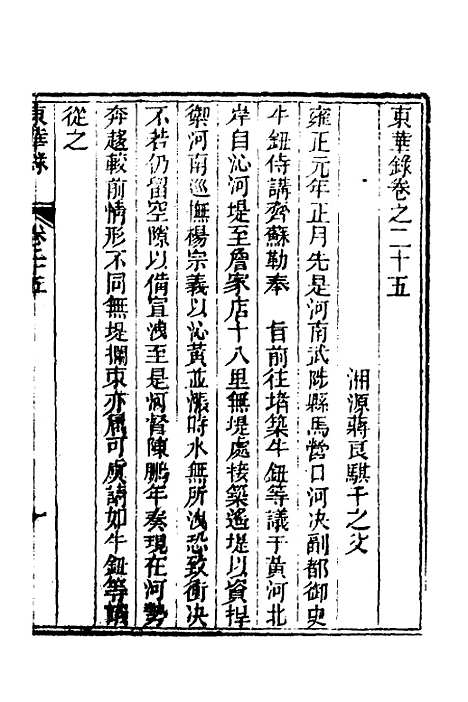 東華錄卷之二十五
湘源蔣良騏千之父
雍正元年正月先是河南武陟縣馬營口河决副都御史
牛鈕侍講齊蘇勒奉　旨前往堵築牛鈕等議于黃河北
岸自沁河堤至詹家店十八里無堤處接築遙堤以資捍
禦河南巡撫楊宗義以沁黃並漲時水無所洩恐致衝决
不若仍留空隙以備宣洩至是河督陳鵬年奏現在河勢
奔趨較前情形不同無堤攔束亦屬可虞請如牛鈕等議
從之
東華錄
卷二十五
一